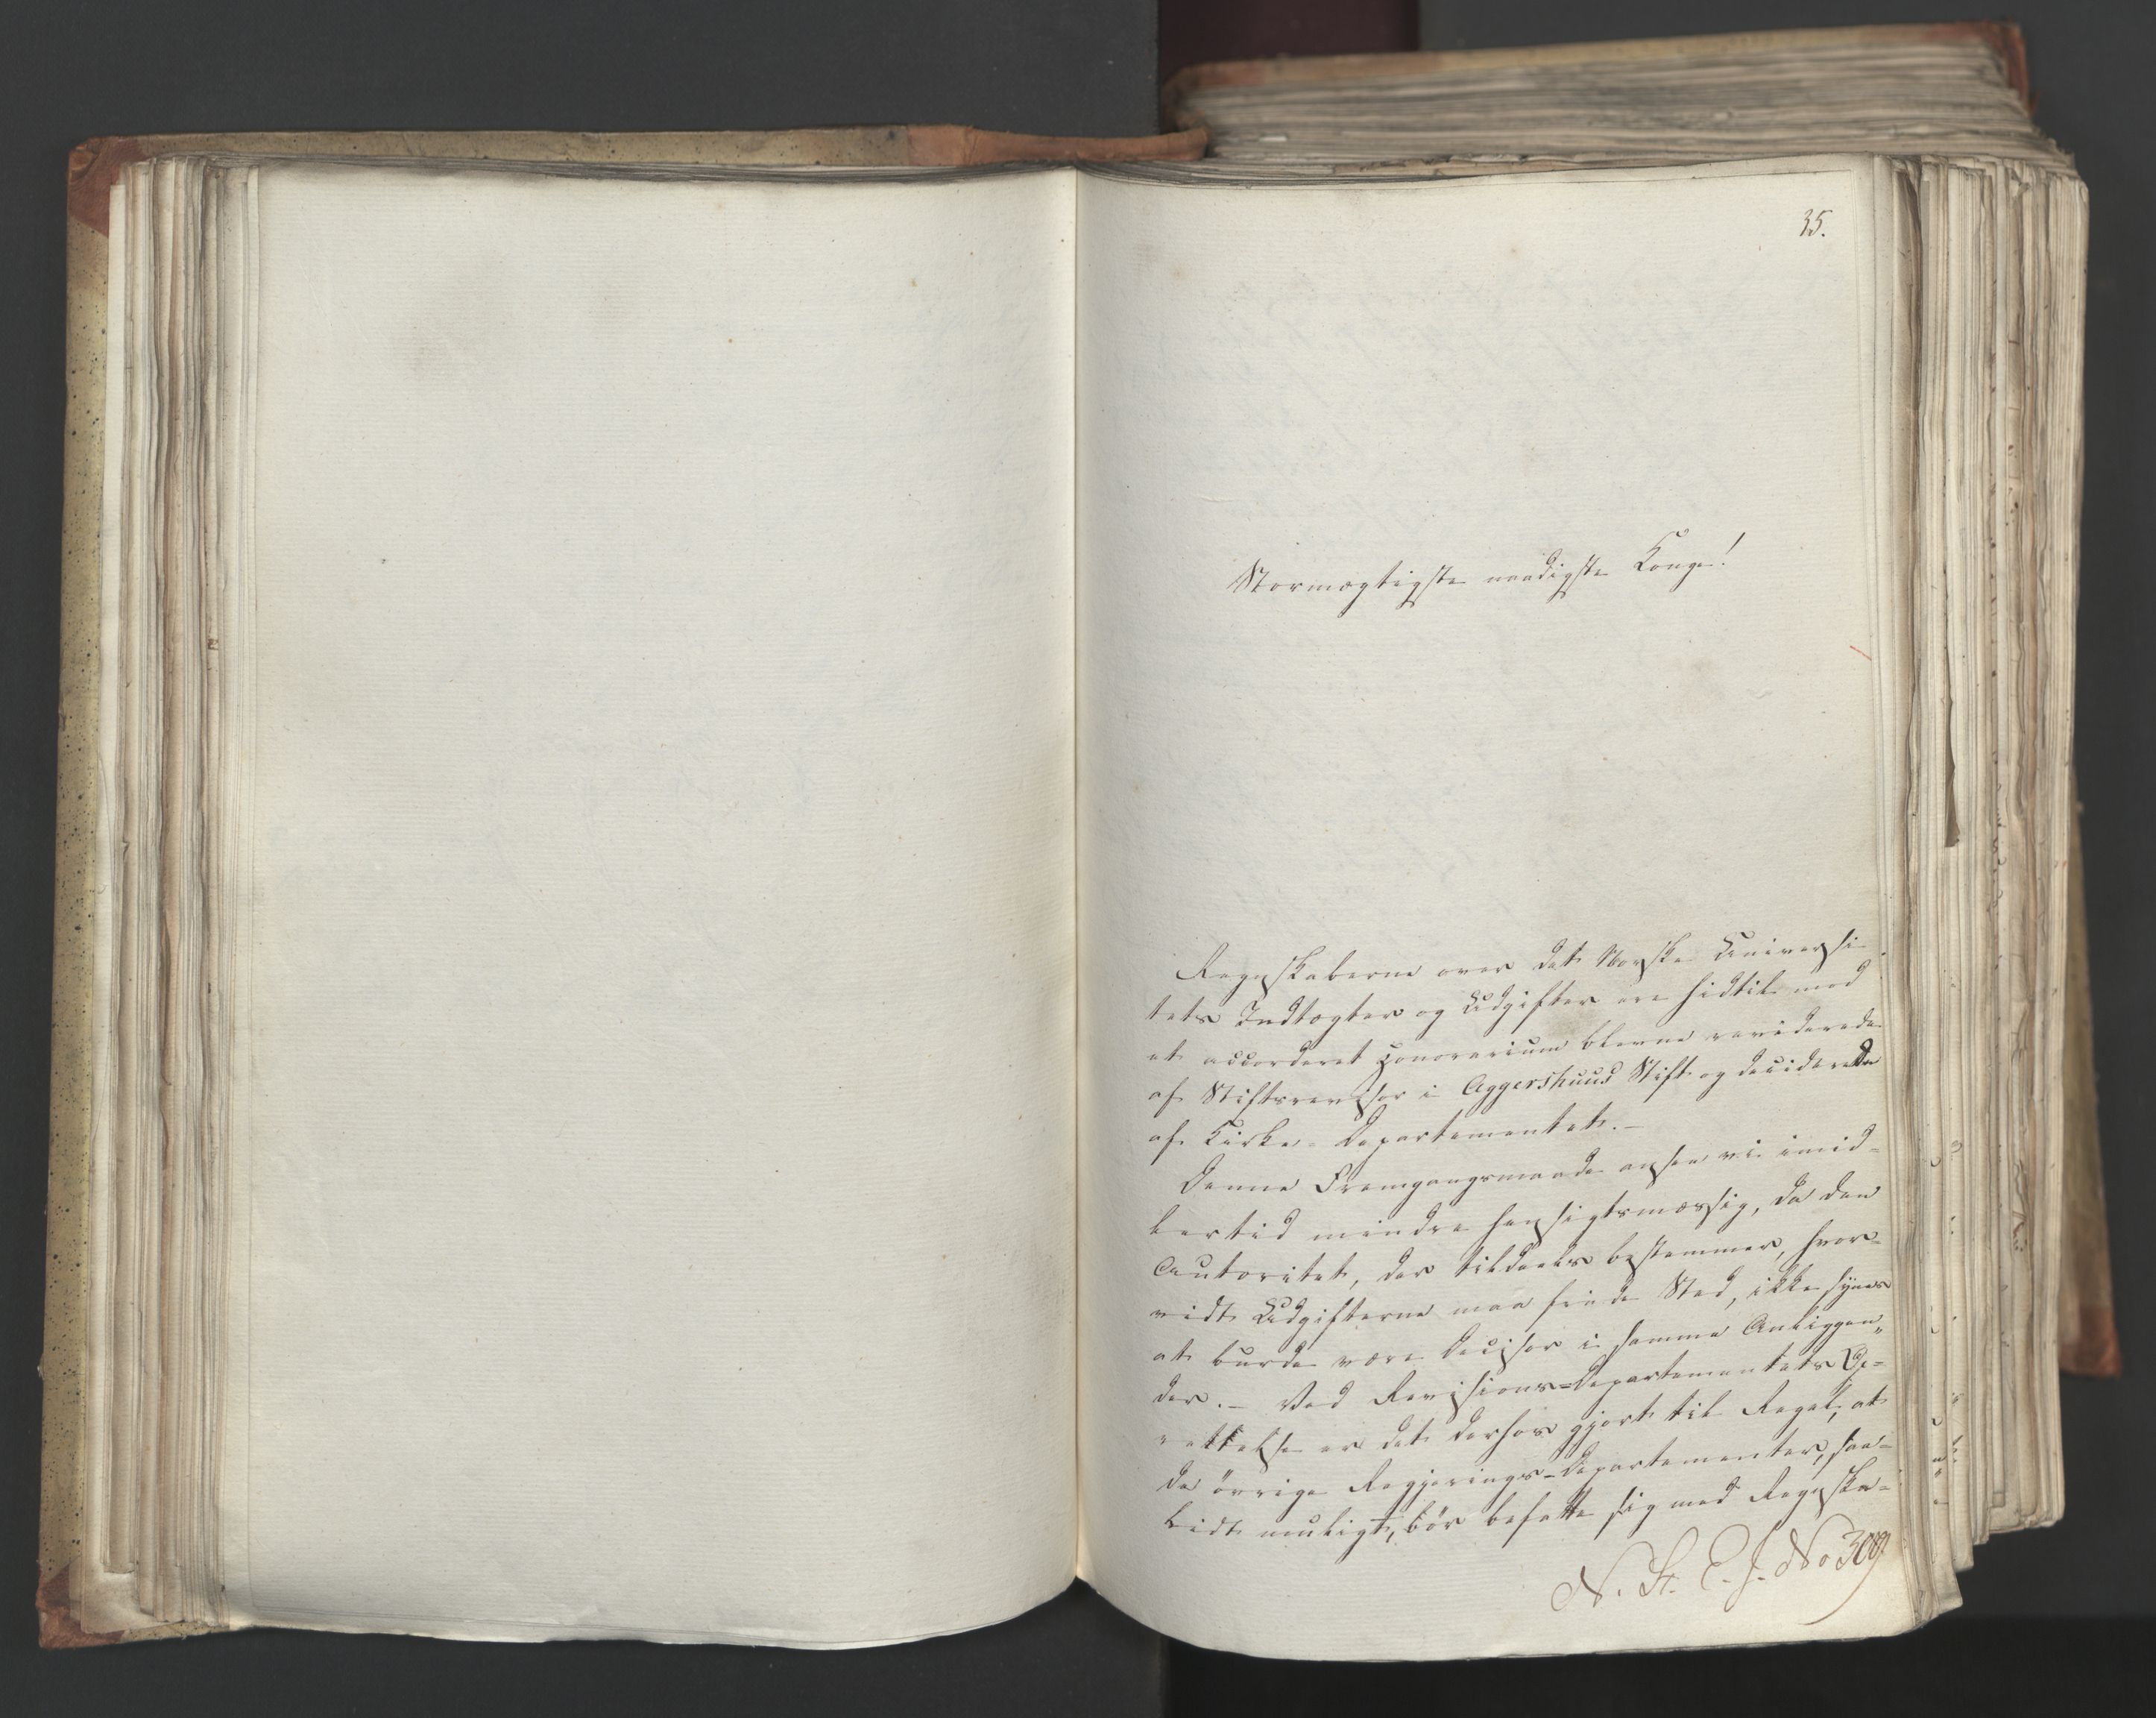 35.
Stormægtigste naadigste Konge!
Regnskaberne over det Norske Universi-
tets Indtægter og Udgifter ere hidtil mod
et accorderet Honorarium blevne reviderede
af Stiftsrevisor i Aggershuus Stift og deciderede
af Kirke-Departementet. –
Denne Fremgangsmaade ansee vi imid-
lertid mindre hensigtsmæssig, da den
Autoritet, der tildeels bestemmer, hvor-
vidt Udgifterne maa finde Sted, ikke synes
at burde være Decisor i samme Anliggen„
der. – Ved Revisions-Departementets Op-
rettelse er det derhos gjort til Regel, at
de övrige Regjerings-Departementer, saa-
vidt muligt, bör befatte sig med Regnska-
N. St. E. J. No 309.